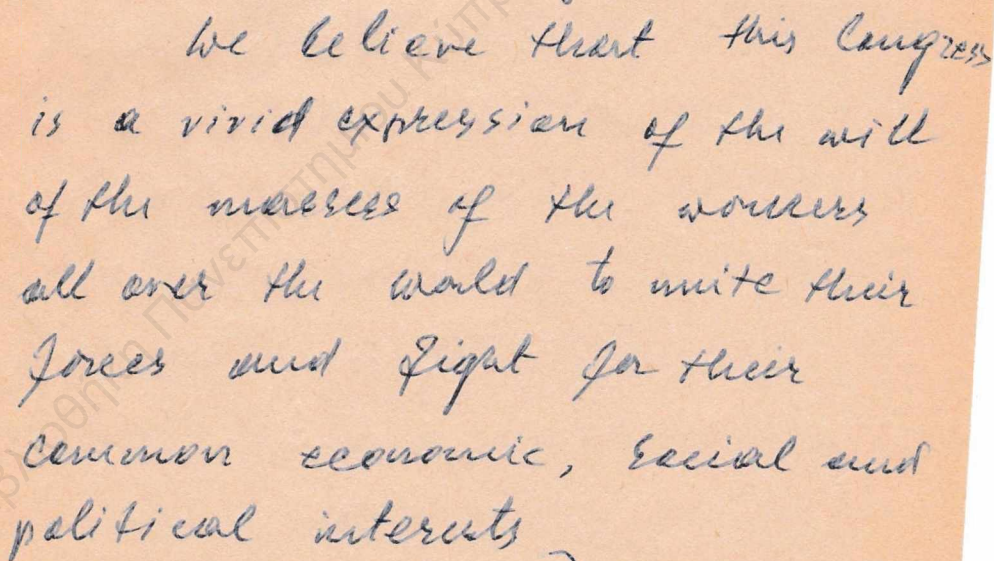 We believe that this Congress
is a vivid expression of the will
of the masses of the workers
all over the world to unite their
forces and fight for their
common economic, social and
political interests